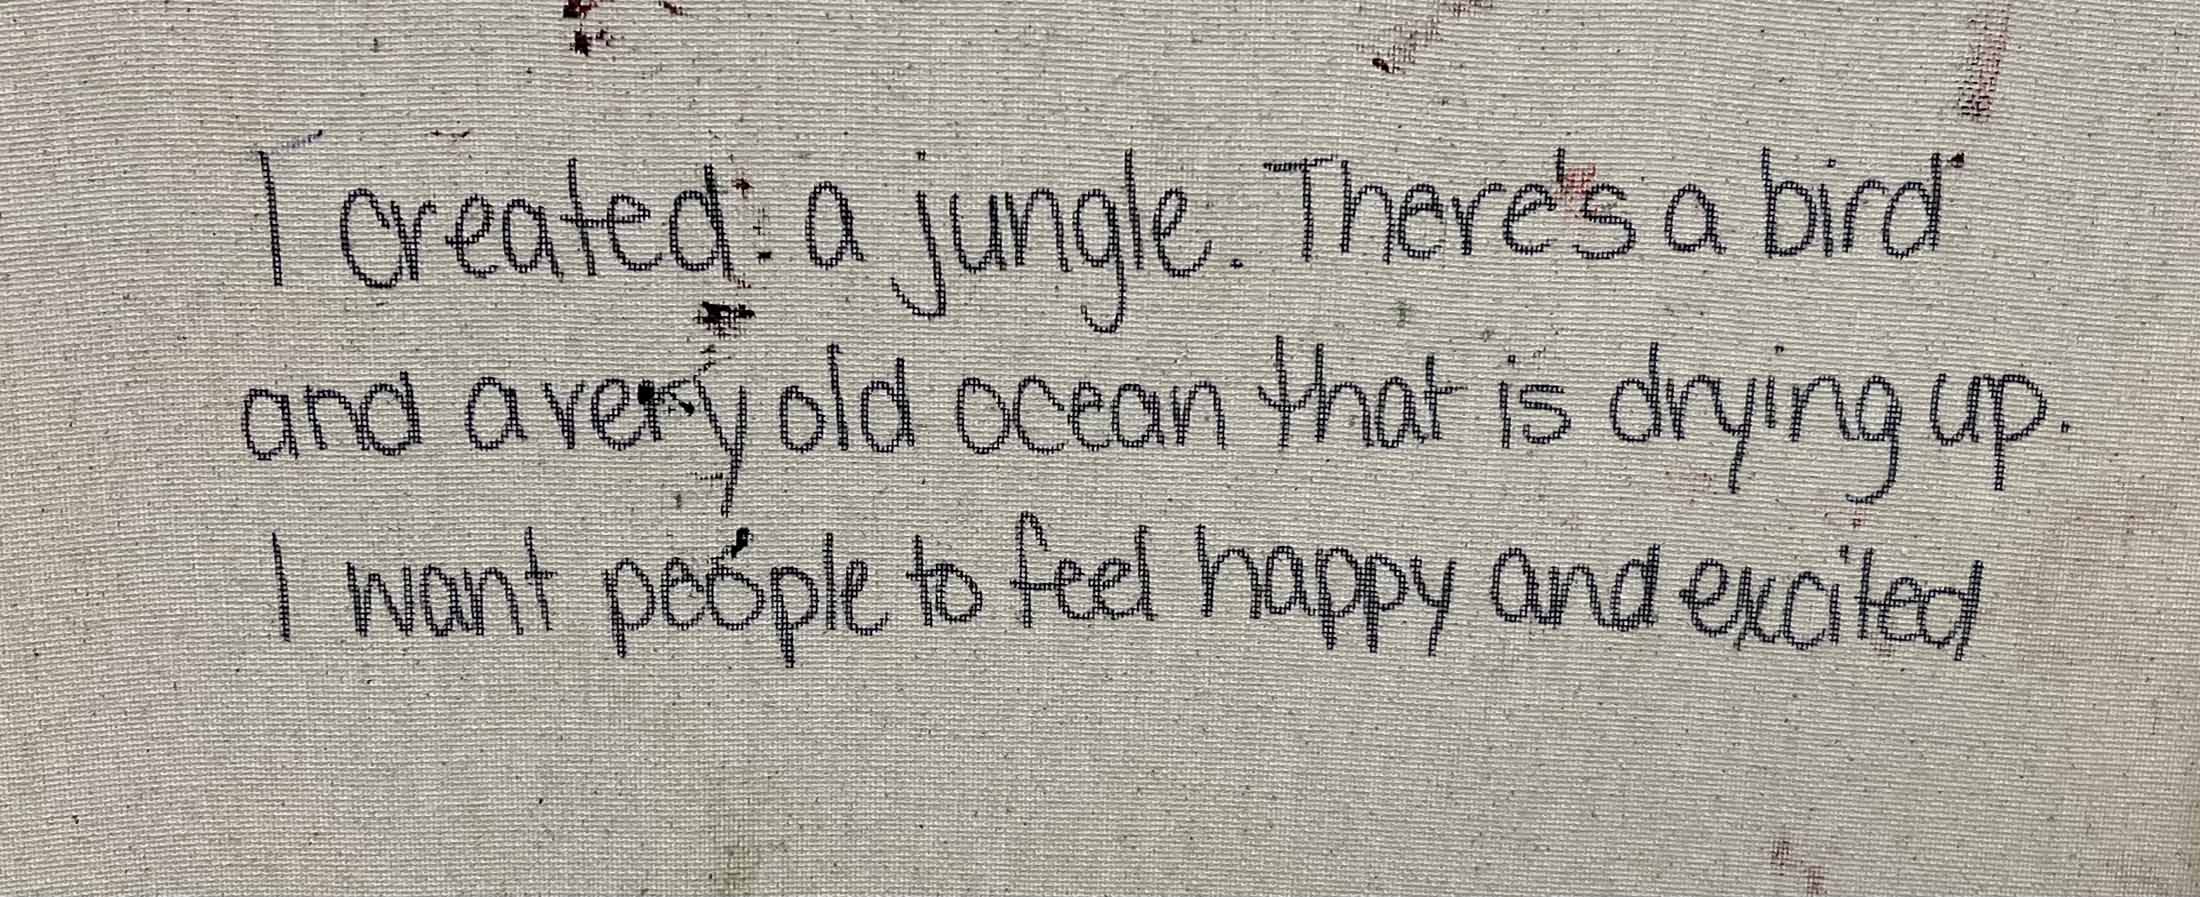 I created: a jungle. There's a bird
and a very old ocean that is drying up.
I want people to feel happy and excited